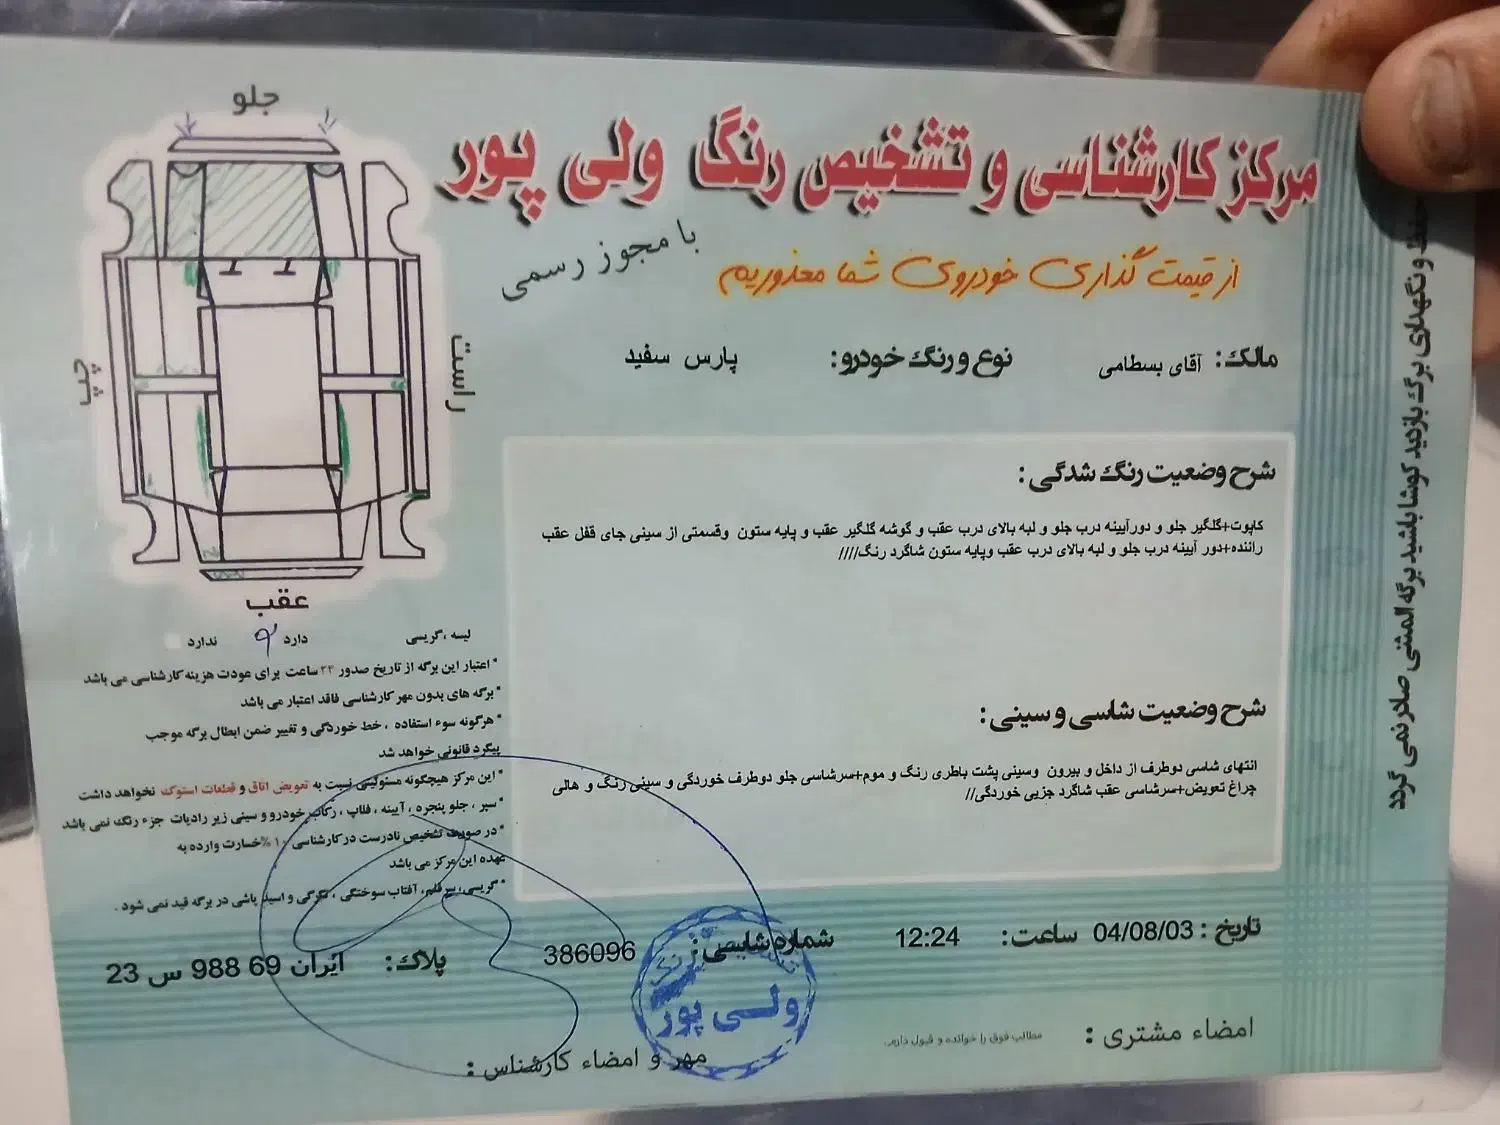 مرکز کارشناسی و تشخیص رنگ ولی پور
با مجوز رسمی
از قیمت گذاری خودروی شما معذوریم
مالک: آقای بسطامی
نوع و رنگ خودرو: پارس سفید
جلو
راست
چپ
عقب
شرح وضعیت رنگ شدگی:
کاپوت+گلگیر جلو و دورآیینه درب جلو و لبه بالای درب عقب و گوشه گلگیر عقب و پایه ستون وقسمتی از سینی جای قفل عقب
راننده+دور آیینه درب جلو و لبه بالای درب عقب وپایه ستون شاگرد رنگ////
شرح وضعیت شاسی و سینی:
انتهای شاسی دوطرف از داخل و بیرون وسینی پشت باطری رنگ و موم+سرشاسی جلو دوطرف خوردگی و سینی رنگ و هالی
چراغ تعویض+سرشاسی عقب شاگرد جزیی خوردگی//
لیسه ،گریسی دارد ندارد
* اعتبار این برگه از تاریخ صدور ۲۴ ساعت برای عودت هزینه کارشناسی می باشد
* برگه های بدون مهر کارشناسی فاقد اعتبار می باشد
* هرگونه سوء استفاده ، خط خوردگی و تغییر ضمن ابطال برگه موجب
پیگرد قانونی خواهد شد
* این مرکز هیچگونه مسئولیتی نسبت به تعویض اتاق و قطعات استوک نخواهد داشت
* سپر ، جلو پنجره ، آیینه ، فلاپ ، رکاب خودرو و سینی زیر رادیات جزء رنگ نمی باشد
* در صورت تشخیص نادرست در کارشناسی ۱۰% خسارت وارده به
عهده این مرکز می باشد
* گریسی، سرقلم، آفتاب سوختگی ، تگرگی و اسید پاشی در برگه قید نمی شود .
تاریخ : 04/08/03
ساعت: 12:24
شماره شاسی: 386096
پلاک: ایران 69 988 س 23
ولی پور
امضاء مشتری :
مطالب فوق را خوانده و قبول دارم.
مهر و امضاء کارشناس :
حفظ و نگهداری برگ بازدید کوشا باشید برگه المثنی صادر نمی گردد